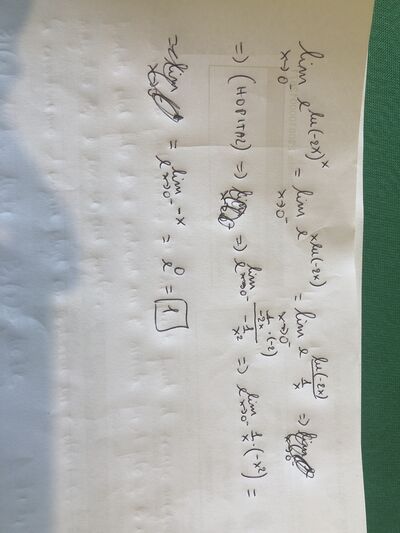 lim x→0⁻ e^(ln(-2x)^x) = lim x→0⁻ e^(x ln(-2x)) = lim x→0⁻ e^(ln(-2x)/(1/x)) ⇒
⇒ (HOPITAL) ⇒ ⇒ e^(lim x→0⁻ (1/(-2x)·(-2))/(-1/x²)) ⇒ e^(lim x→0⁻ 1/x·(-x²)) =
= e^(lim x→0⁻ -x) = e^0 = 1